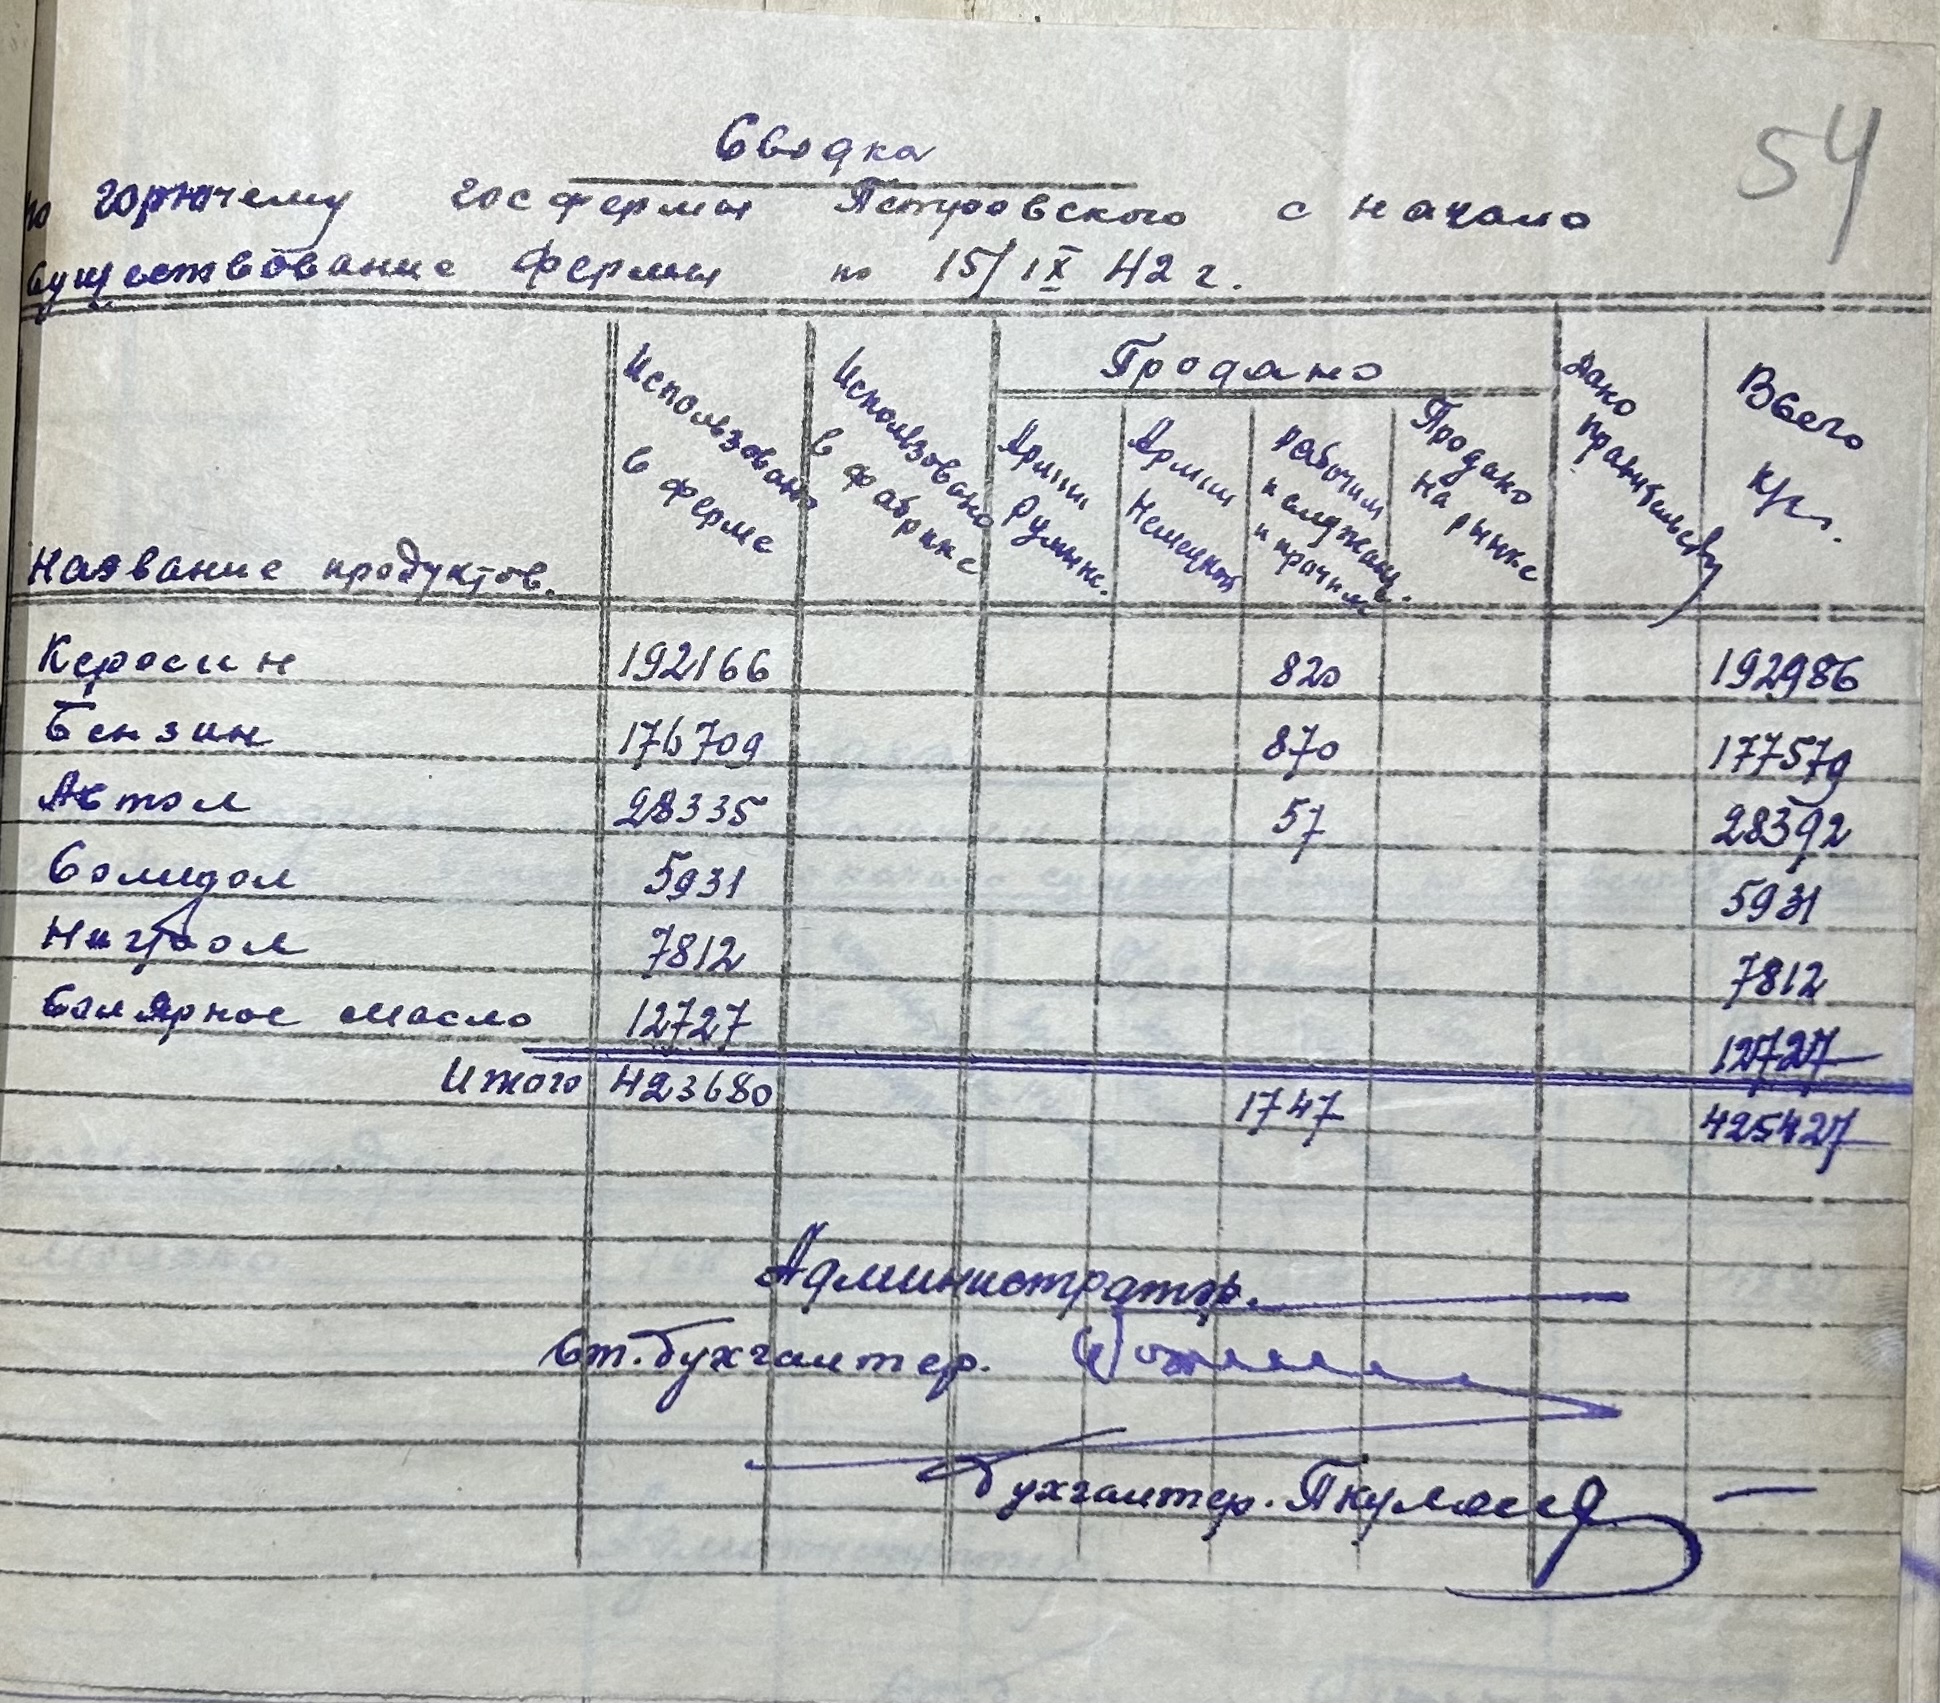 54
Сводка
по горючему госфермы Петровского с начало
существование фермы по 15/IX 42 г.
Название продуктов. Использовано в ферме Использовано в фабрике Продано Армии Румынс. Армии Немецкой рабочим и служащ. и прочим Продано на рынке Дано правительству Всего к/г.
Керосин 192166 820 192986
Бензин 176709 870 177579
Автол 28335 57 28392
Солидол 5931 5931
Нигрол 7812 7812
Солярное масло 12727 12727
Итого 423680 1747 425427
Администратор.
Ст. бухгалтер.
Бухгалтер.